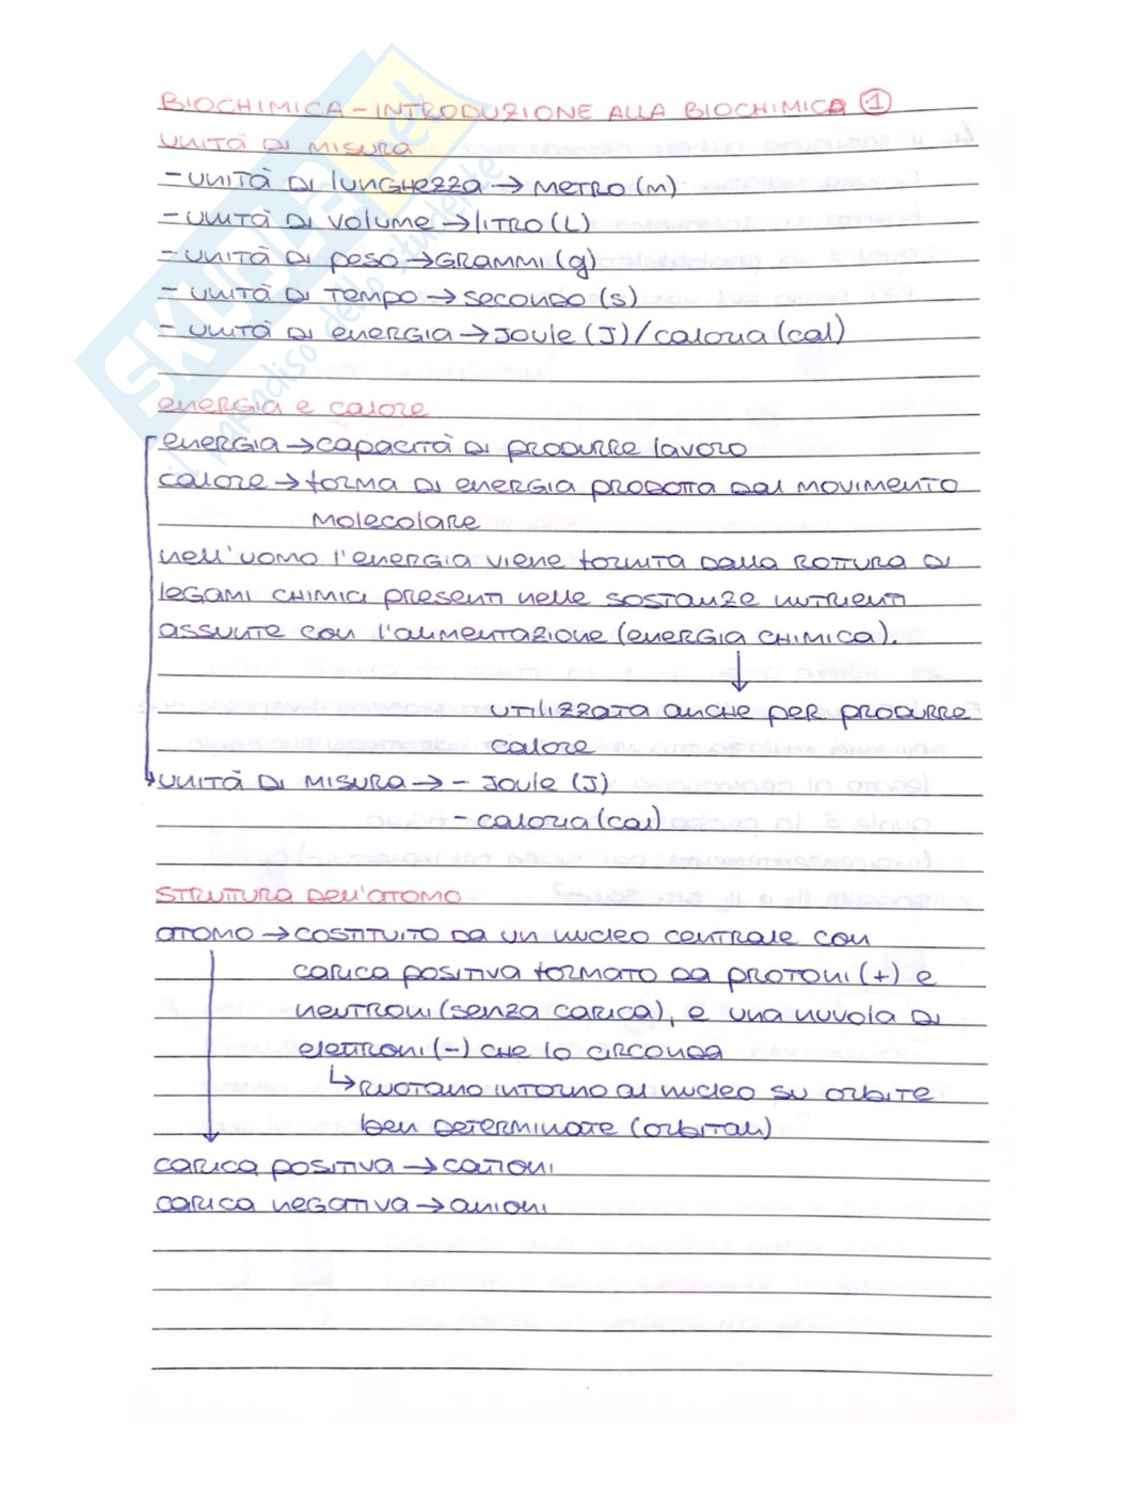 BIOCHIMICA - INTRODUZIONE ALLA BIOCHIMICA ①
UNITÀ DI MISURA
- UNITÀ DI LUNGHEZZA → METRO (m)
- UNITÀ DI VOLUME → LITRO (L)
- UNITÀ DI PESO → GRAMMI (g)
- UNITÀ DI TEMPO → SECONDO (s)
- UNITÀ DI ENERGIA → JOULE (J) / CALORIA (cal)
ENERGIA E CALORE
ENERGIA → CAPACITÀ DI PRODURRE LAVORO
CALORE → FORMA DI ENERGIA PRODOTTA DAL MOVIMENTO
MOLECOLARE
NELL'UOMO L'ENERGIA VIENE FORNITA DALLA ROTTURA DI
LEGAMI CHIMICI PRESENTI NELLE SOSTANZE NUTRIENTI
ASSUNTE CON L'ALIMENTAZIONE (ENERGIA CHIMICA).
↓
UTILIZZATA ANCHE PER PRODURRE
CALORE
UNITÀ DI MISURA → - JOULE (J)
- CALORIA (cal)
STRUTTURA DELL'ATOMO
ATOMO → COSTITUITO DA UN NUCLEO CENTRALE CON
CARICA POSITIVA FORMATO DA PROTONI (+) E
NEUTRONI (SENZA CARICA), E UNA NUVOLA DI
ELETTRONI (-) CHE LO CIRCONDA
↳ RUOTANO INTORNO AL NUCLEO SU ORBITE
BEN DETERMINATE (ORBITALI)
CARICA POSITIVA → CATIONI
CARICA NEGATIVA → ANIONI
SKUOLA.net
il paradiso dello studente